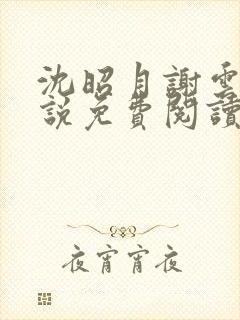 沈昭月謝雲
說免費閱讀
夜宵宵夜